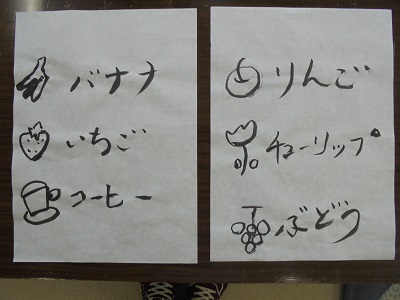 バナナ
いちご
コーヒー
りんご
チューリップ
ぶどう